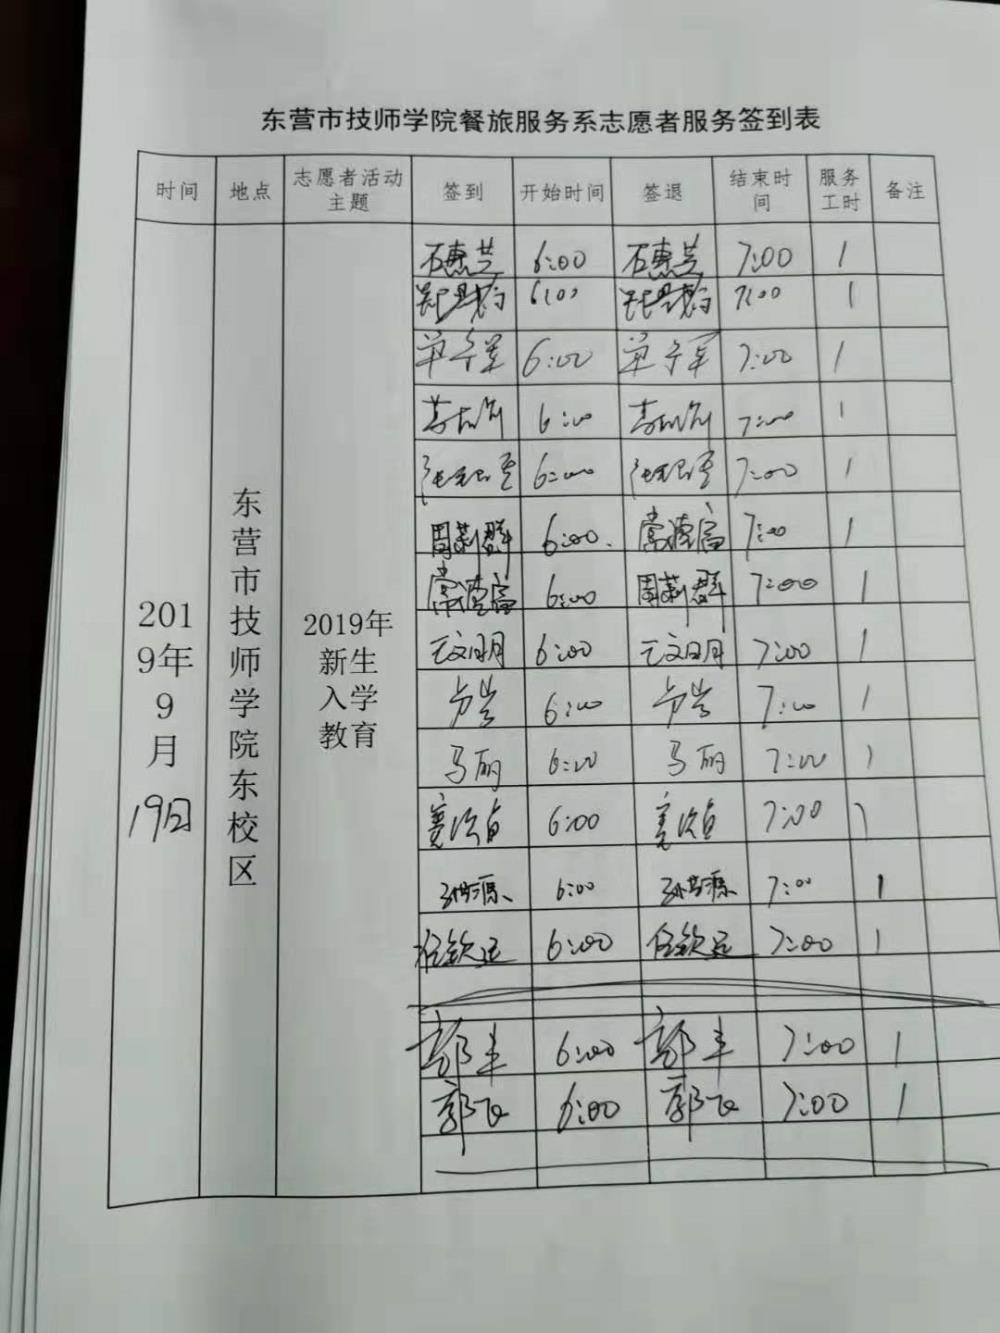 东营市技师学院餐旅服务系志愿者服务签到表
时间 地点 志愿者活动主题 签到 开始时间 签退 结束时间 服务工时 备注
2019年9月19日 东营市技师学院东校区 2019年新生入学教育
石惠芝 6:00 石惠芝 7:00 1
6:00 7:00 1
单令军 6:00 单令军 7:00 1
6:00 7:00 1
6:00 7:00 1
周莉群 6:00 常德富 7:00 1
常德富 6:00 周莉群 7:00 1
亓文明 6:00 亓文明 7:00 1
6:00 7:00 1
马丽 6:00 马丽 7:00 1
6:00 7:00 1
6:00 7:00 1
任钦远 6:00 任钦远 7:00 1
郭丰 6:00 郭丰 7:00 1
郭飞 6:00 郭飞 7:00 1